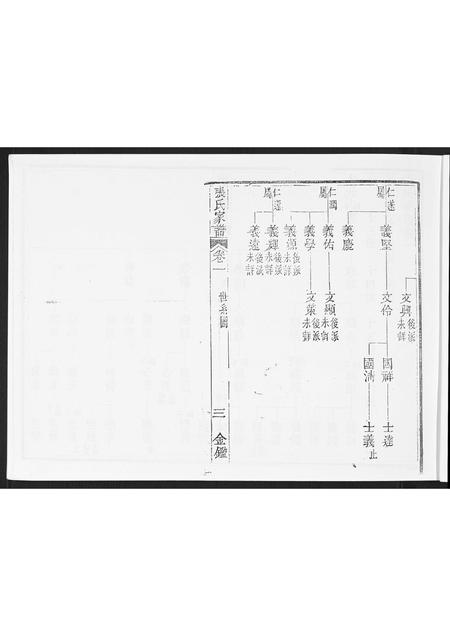 文興後派未詳
仁達屬
義堅
文伶
國祥
士達
國清
士義止
義慶
仁國屬
義佑
文顯後派未詳
義學
文策後派未詳
義源後派未詳
仁達屬
義輝後派未詳
義遠後派未詳
張氏家譜
卷一
世系圖
三
金鑑